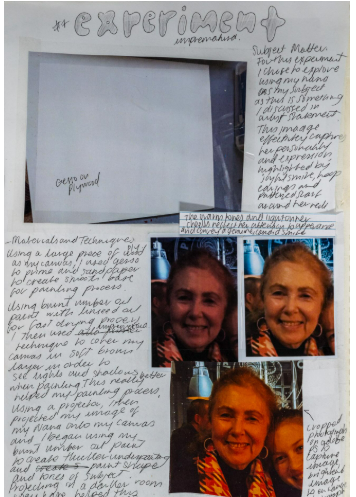 ** experiment
imprematura.
Subject Matter
For this experiment
I chose to explore
using my nana
as my subject
as this is something
I discussed in
artist statement.
This image
effectively captures
her personality
and expression
highlighted by
joyful smile, hoop
earings and
patterned scarf
around her neck
Gesso on
plywood
and
smile
Materials and Techniques
Using a large piece of ply
as my canvas, I used gesso
to prime and sandpaper
to create smooth base
for painting process
Using burnt umber oil
paint with linseed oil
for fast drying process
I then used
technique to cover my
canvas in soft brown
layer in order to
see lights and shadows better
when painting this really
helped my painting process,
Using a projector, I then
projected my image of
my Nana onto my canvas
and I began using my
burnt umber oil paint
to create thicker underpainting
and paint shape
and tones of subject.
Projecting in a darker room
helped this
cropped
photograph
in adobe
to
capture
image
without
image